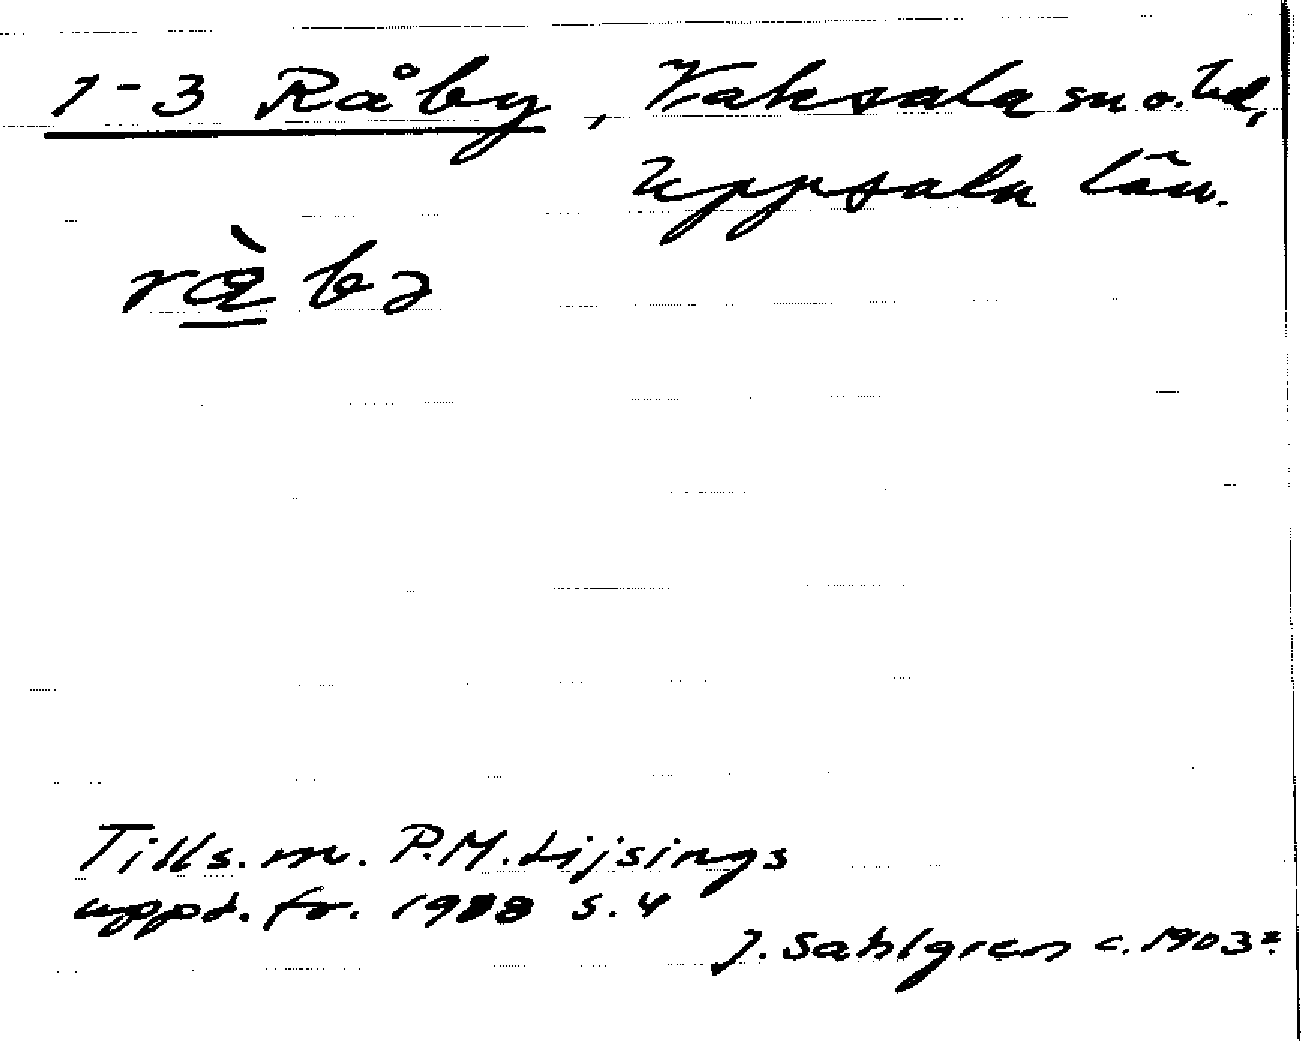 1-3 Råby, Vaksala sn o. hd,
Uppsala län.
Tills. m. P.M. Lijsings
uppt. fr. 1988 s. 4
J. Sahlgren c. 1903